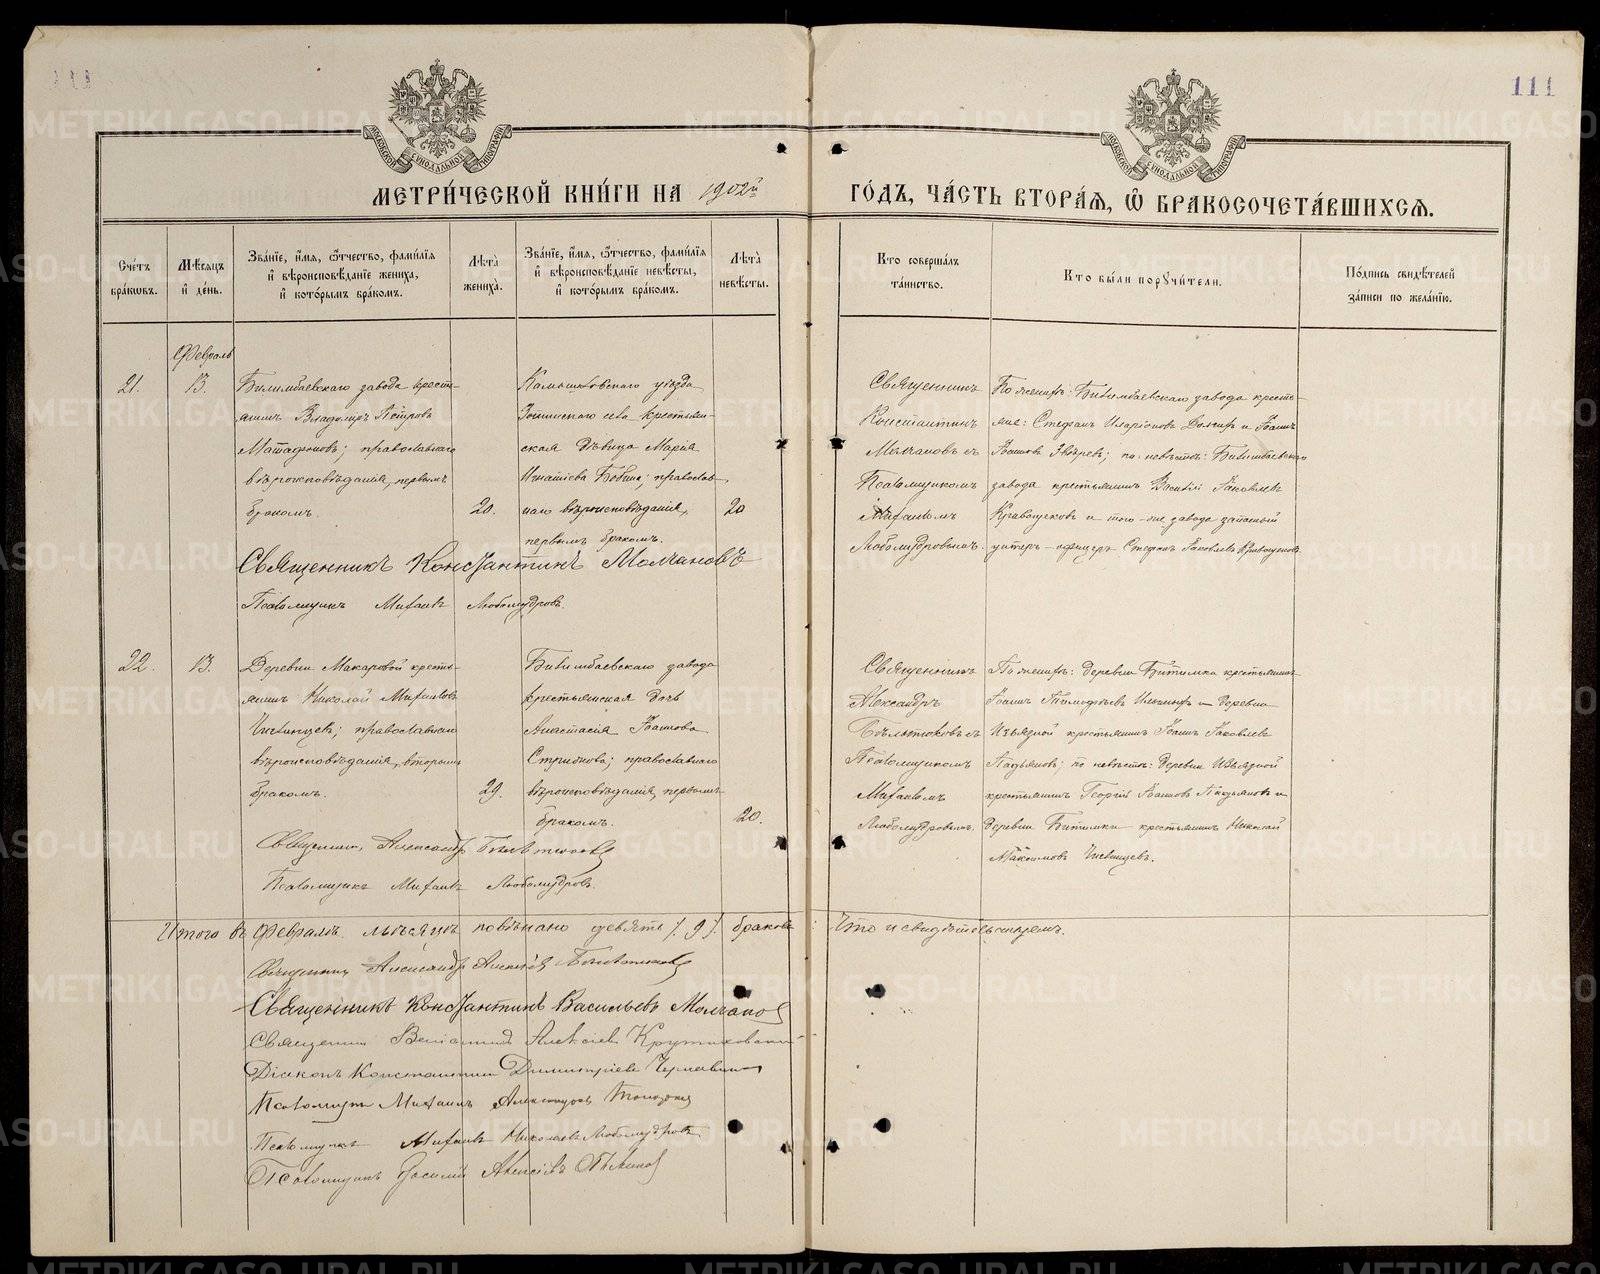 111
МЕТРИЧЕСКОЙ КНИГИ НА 1902й
ГОДЪ, ЧАСТЬ ВТОРАЯ, Ѡ БРАКОСОЧЕТАВШИХСЯ.
Счетъ браковъ.
Мѣсяцъ и день.
Званіе, имя, отчество, фамилія и вѣроисповѣданіе жениха, и которымъ бракомъ.
Лѣта жениха.
Званіе, имя, отчество, фамилія и вѣроисповѣданіе невѣсты, и которымъ бракомъ.
Лѣта невѣсты.
Кто совершалъ таинство.
Кто были поручители.
Подпись свидѣтелей записи по желанію.
Февраль
21.
13.
Билимбаевскаго завода кресть-
янинъ Владимiръ Петровъ
; православнаго
вѣроисповѣданія, первымъ
бракомъ.
20.
Камышловскаго уѣзда
села крестьян-
ская дѣвица Марія
Игнатіева Бабина; православ-
наго вѣроисповѣданія,
первымъ бракомъ.
20
Священникъ
Константинъ
Молчановъ съ
Псаломщикомъ
Михаиломъ
Любомудровымъ.
По женихѣ: Билимбаевскаго завода кресть-
яне: Стефанъ Иларіоновъ и Іоаннъ
Іоанновъ Звѣревъ; по невѣстѣ: Билимбаевскаго
завода крестьянинъ Василій Іаковлевъ
и того-же завода запасный
унтеръ-офицеръ Стефанъ Іаковлевъ
Священникъ Константинъ Молчановъ
Псаломщикъ Михаилъ Любомудровъ.
22.
13.
Деревни Макаровой кресть-
янинъ Николай Михаиловъ
; православнаго
вѣроисповѣданія, вторымъ
бракомъ.
29.
Билимбаевскаго завода
крестьянская дочь
Анастасія Іоаннова
; православнаго
вѣроисповѣданія, первымъ
бракомъ.
20.
Священникъ
Александръ
съ
Псаломщикомъ
Михаиломъ
Любомудровымъ.
По женихѣ: деревни Битимки крестьянинъ
Іоаннъ Тимофеевъ и деревни
крестьянинъ Іоаннъ Іаковлевъ
; по невѣстѣ: деревни
крестьянинъ Георгій Іоанновъ и
деревни Битимки крестьянинъ Николай
Максимовъ
Священникъ Александръ
Псаломщикъ Михаилъ Любомудровъ.
Итого въ Февралѣ мѣсяцѣ повѣнчано девять /9/ браковъ
Что и свидѣтельствуемъ.
Священникъ Александръ Алексѣевъ
Священникъ Константинъ Васильевъ Молчановъ
Священникъ Веніаминъ Алексіевъ
Діаконъ Константинъ Димитріевъ
Псаломщикъ Михаилъ
Псаломщикъ Михаилъ Николаевъ Любомудровъ
Псаломщикъ Василій Алексіевъ
METRIKI.GASO-URAL.RU